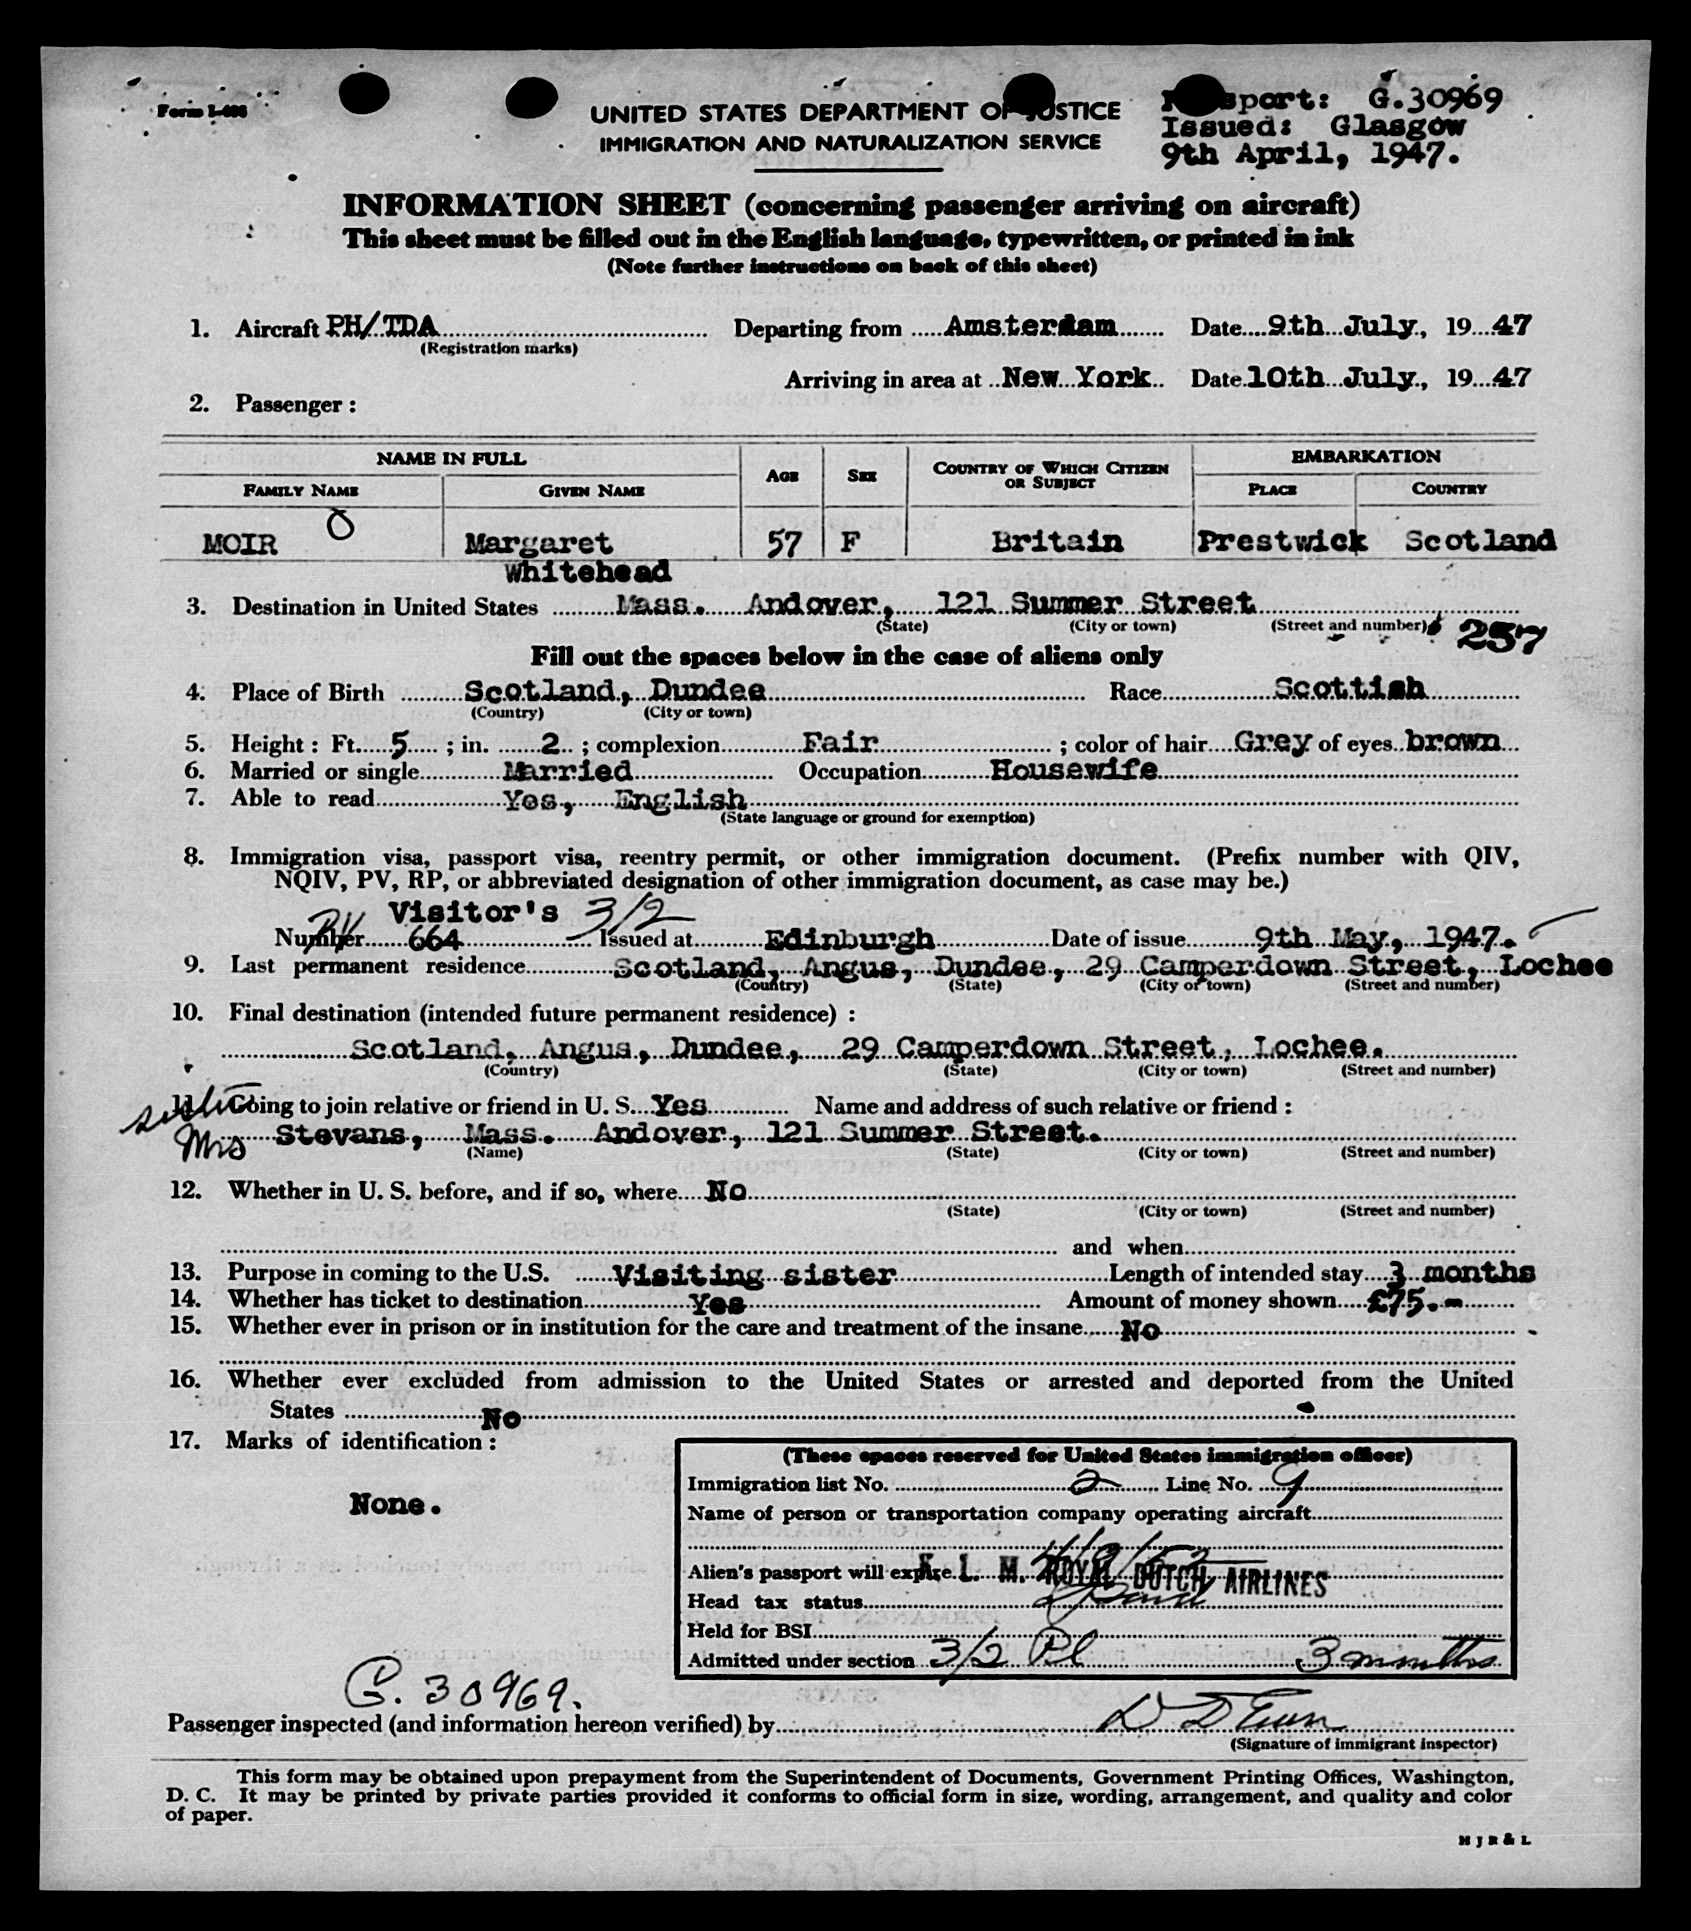 Form I-466
UNITED STATES DEPARTMENT OF JUSTICE
IMMIGRATION AND NATURALIZATION SERVICE
Passport: G.30969
Issued: Glasgow
9th April, 1947.
INFORMATION SHEET (concerning passenger arriving on aircraft)
This sheet must be filled out in the English language, typewritten, or printed in ink
(Note further instructions on back of this sheet)
1. Aircraft PH/TDA Departing from Amsterdam Date 9th July, 19 47
(Registration marks)
Arriving in area at New York Date 10th July, 19 47
2. Passenger:
NAME IN FULL AGE SEX COUNTRY OF WHICH CITIZEN OR SUBJECT EMBARKATION
FAMILY NAME GIVEN NAME PLACE COUNTRY
MOIR Margaret 57 F Britain Prestwick Scotland
Whitehead
3. Destination in United States Mass. Andover, 121 Summer Street
(State) (City or town) (Street and number)
257
Fill out the spaces below in the case of aliens only
4. Place of Birth Scotland, Dundee Race Scottish
(Country) (City or town)
5. Height: Ft. 5 ; in. 2 ; complexion Fair ; color of hair Grey of eyes brown
6. Married or single Married Occupation Housewife
7. Able to read Yes, English
(State language or ground for exemption)
8. Immigration visa, passport visa, reentry permit, or other immigration document. (Prefix number with QIV,
NQIV, PV, RP, or abbreviated designation of other immigration document, as case may be.)
Visitor's 3/2
Number PV 664 Issued at Edinburgh Date of issue 9th May, 1947.
9. Last permanent residence Scotland, Angus, Dundee, 29 Camperdown Street, Lochee
(Country) (State) (City or town) (Street and number)
10. Final destination (intended future permanent residence) :
Scotland, Angus, Dundee, 29 Camperdown Street, Lochee.
(Country) (State) (City or town) (Street and number)
sister
11. Going to join relative or friend in U. S. Yes Name and address of such relative or friend :
Mrs Stevans, Mass. Andover, 121 Summer Street.
(Name) (State) (City or town) (Street and number)
12. Whether in U. S. before, and if so, where No
(State) (City or town) (Street and number)
and when
13. Purpose in coming to the U.S. Visiting sister Length of intended stay 3 months
14. Whether has ticket to destination Yes Amount of money shown £75.-
15. Whether ever in prison or in institution for the care and treatment of the insane No
16. Whether ever excluded from admission to the United States or arrested and deported from the United
States No
17. Marks of identification :
None.
(These spaces reserved for United States immigration officer)
Immigration list No. 2 Line No. 9
Name of person or transportation company operating aircraft
K. L. M. ROYAL DUTCH AIRLINES
Alien's passport will expire 4/9/52
Head tax status
Held for BSI
Admitted under section 3/2 Pl 3 months
G. 30969.
Passenger inspected (and information hereon verified) by
(Signature of immigrant inspector)
This form may be obtained upon prepayment from the Superintendent of Documents, Government Printing Offices, Washington,
D. C. It may be printed by private parties provided it conforms to official form in size, wording, arrangement, and quality and color
of paper.
H J R & L